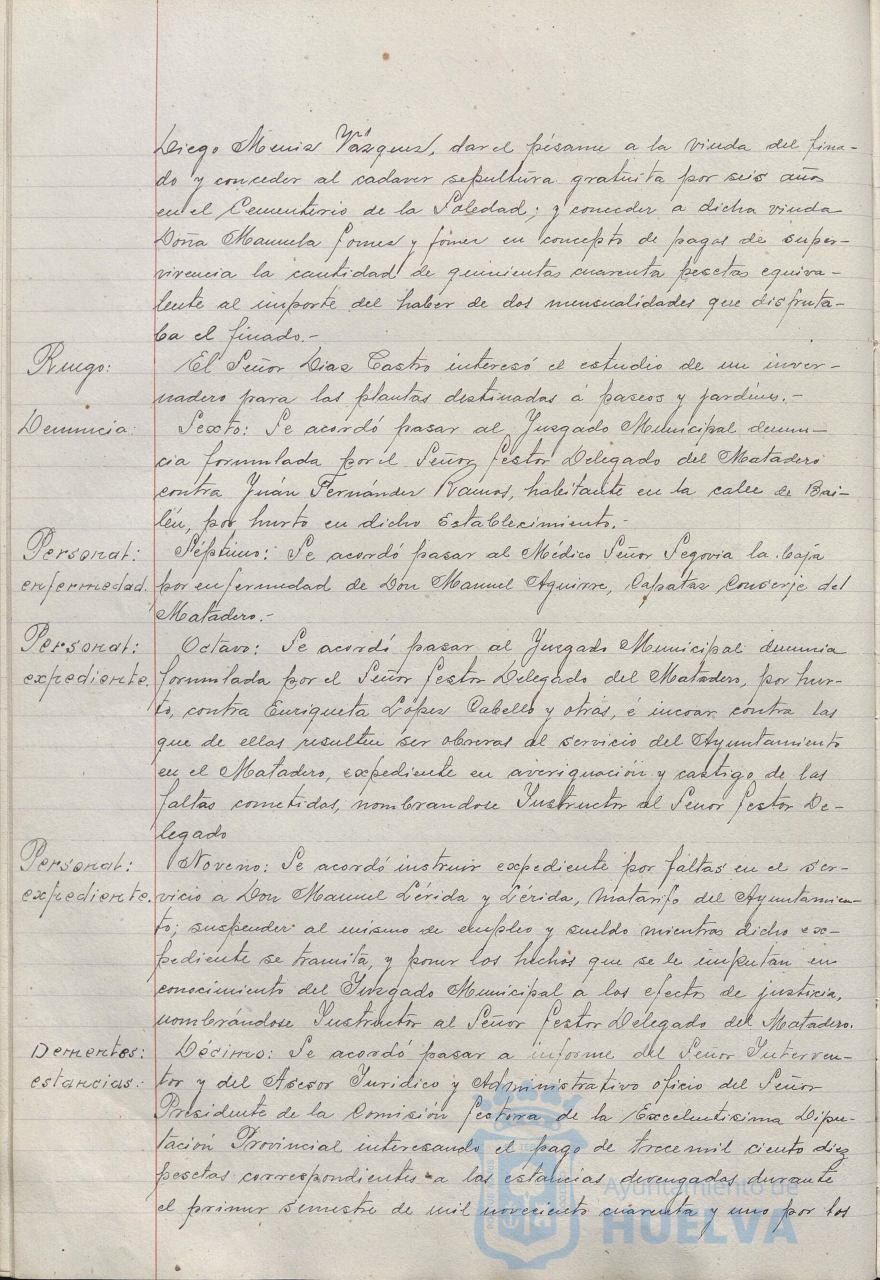 Diego Meniz Vázquez, dar el pésame a la viuda del fina-
do y conceder al cadaver sepultura gratuita por seis años
en el Cementerio de la Soledad; y conceder a dicha viuda
Doña Manuela Gomez y Gómez en concepto de pagas de super-
vivencia la cantidad de quinientas cuarenta pesetas equiva-
lente al importe del haber de dos mensualidades que disfruta-
ba el finado.-
Ruego: El Señor Diaz Castro interesó el estudio de un inver-
nadero para las plantas destinadas á paseos y jardines.-
Denuncia: Sexto: Se acordó pasar al Juzgado Municipal denun-
cia formulada por el Señor Gestor Delegado del Matadero
contra Juán Fernández Ramos, habitante en la calle de Bai-
lén, por hurto en dicho Establecimiento.-
Personal: Séptimo: Se acordó pasar al Médico Señor Segovia la baja
enfermedad. por enfermedad de Don Manuel Aguirre, Capataz Conserje del
Matadero.-
Personal: Octavo: Se acordó pasar al Juzgado Municipal denuncia
expediente. formulada por el Señor Gestor Delegado del Matadero, por hur-
to, contra Enriqueta López Cabello y otras, é incoar contra las
que de ellas resulten ser obreras al servicio del Ayuntamiento
en el Matadero, expediente en averiguación y castigo de las
faltas cometidas, nombrandose Instructor al Señor Gestor De-
legado
Personal: Noveno: Se acordó instruir expediente por faltas en el ser-
expediente. vicio a Don Manuel Lérida y Lérida, matarife del Ayuntamien-
to; suspender al mismo de empleo y sueldo mientras dicho ex-
pediente se tramita, y poner los hechos que se le imputan en
conocimiento del Juzgado Municipal a los efectos de justicia,
nombrándose Instructor al Señor Gestor Delegado del Matadero.
Dementes: Décimo: Se acordó pasar a informe del Señor Interven-
estancias.- tor y del Asesor Juridico y Administrativo oficio del Señor
Presidente de la Comisión Gestora de la Excelentisima Dipu-
tación Provincial interesando el pago de trece mil ciento diez
pesetas correspondientes a las estancias devengadas durante
el primer semestre de mil novecientos cuarenta y uno por los
Ayuntamiento de
HUELVA